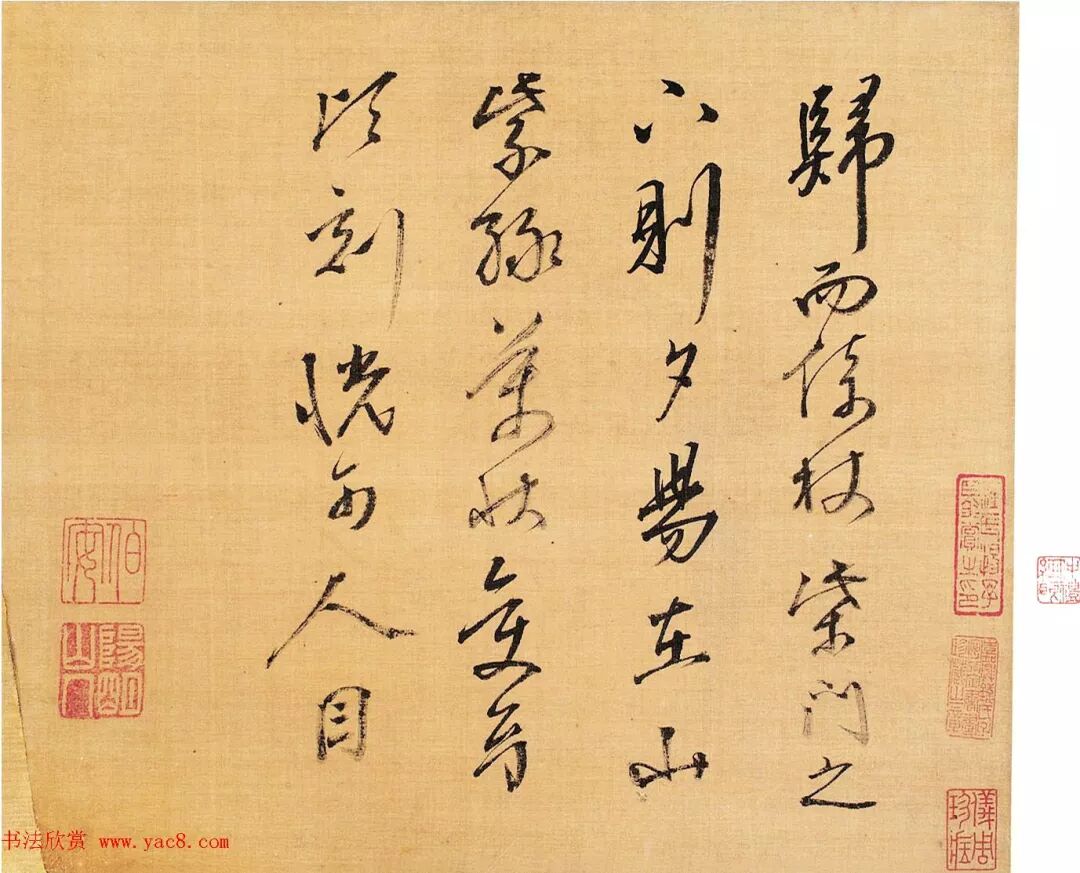 歸而倚杖柴門之
下則夕陽在山
紫綠萬狀變幻
頃刻恍可人目
伯安
儀周珍藏
书法欣赏 www.yac8.com